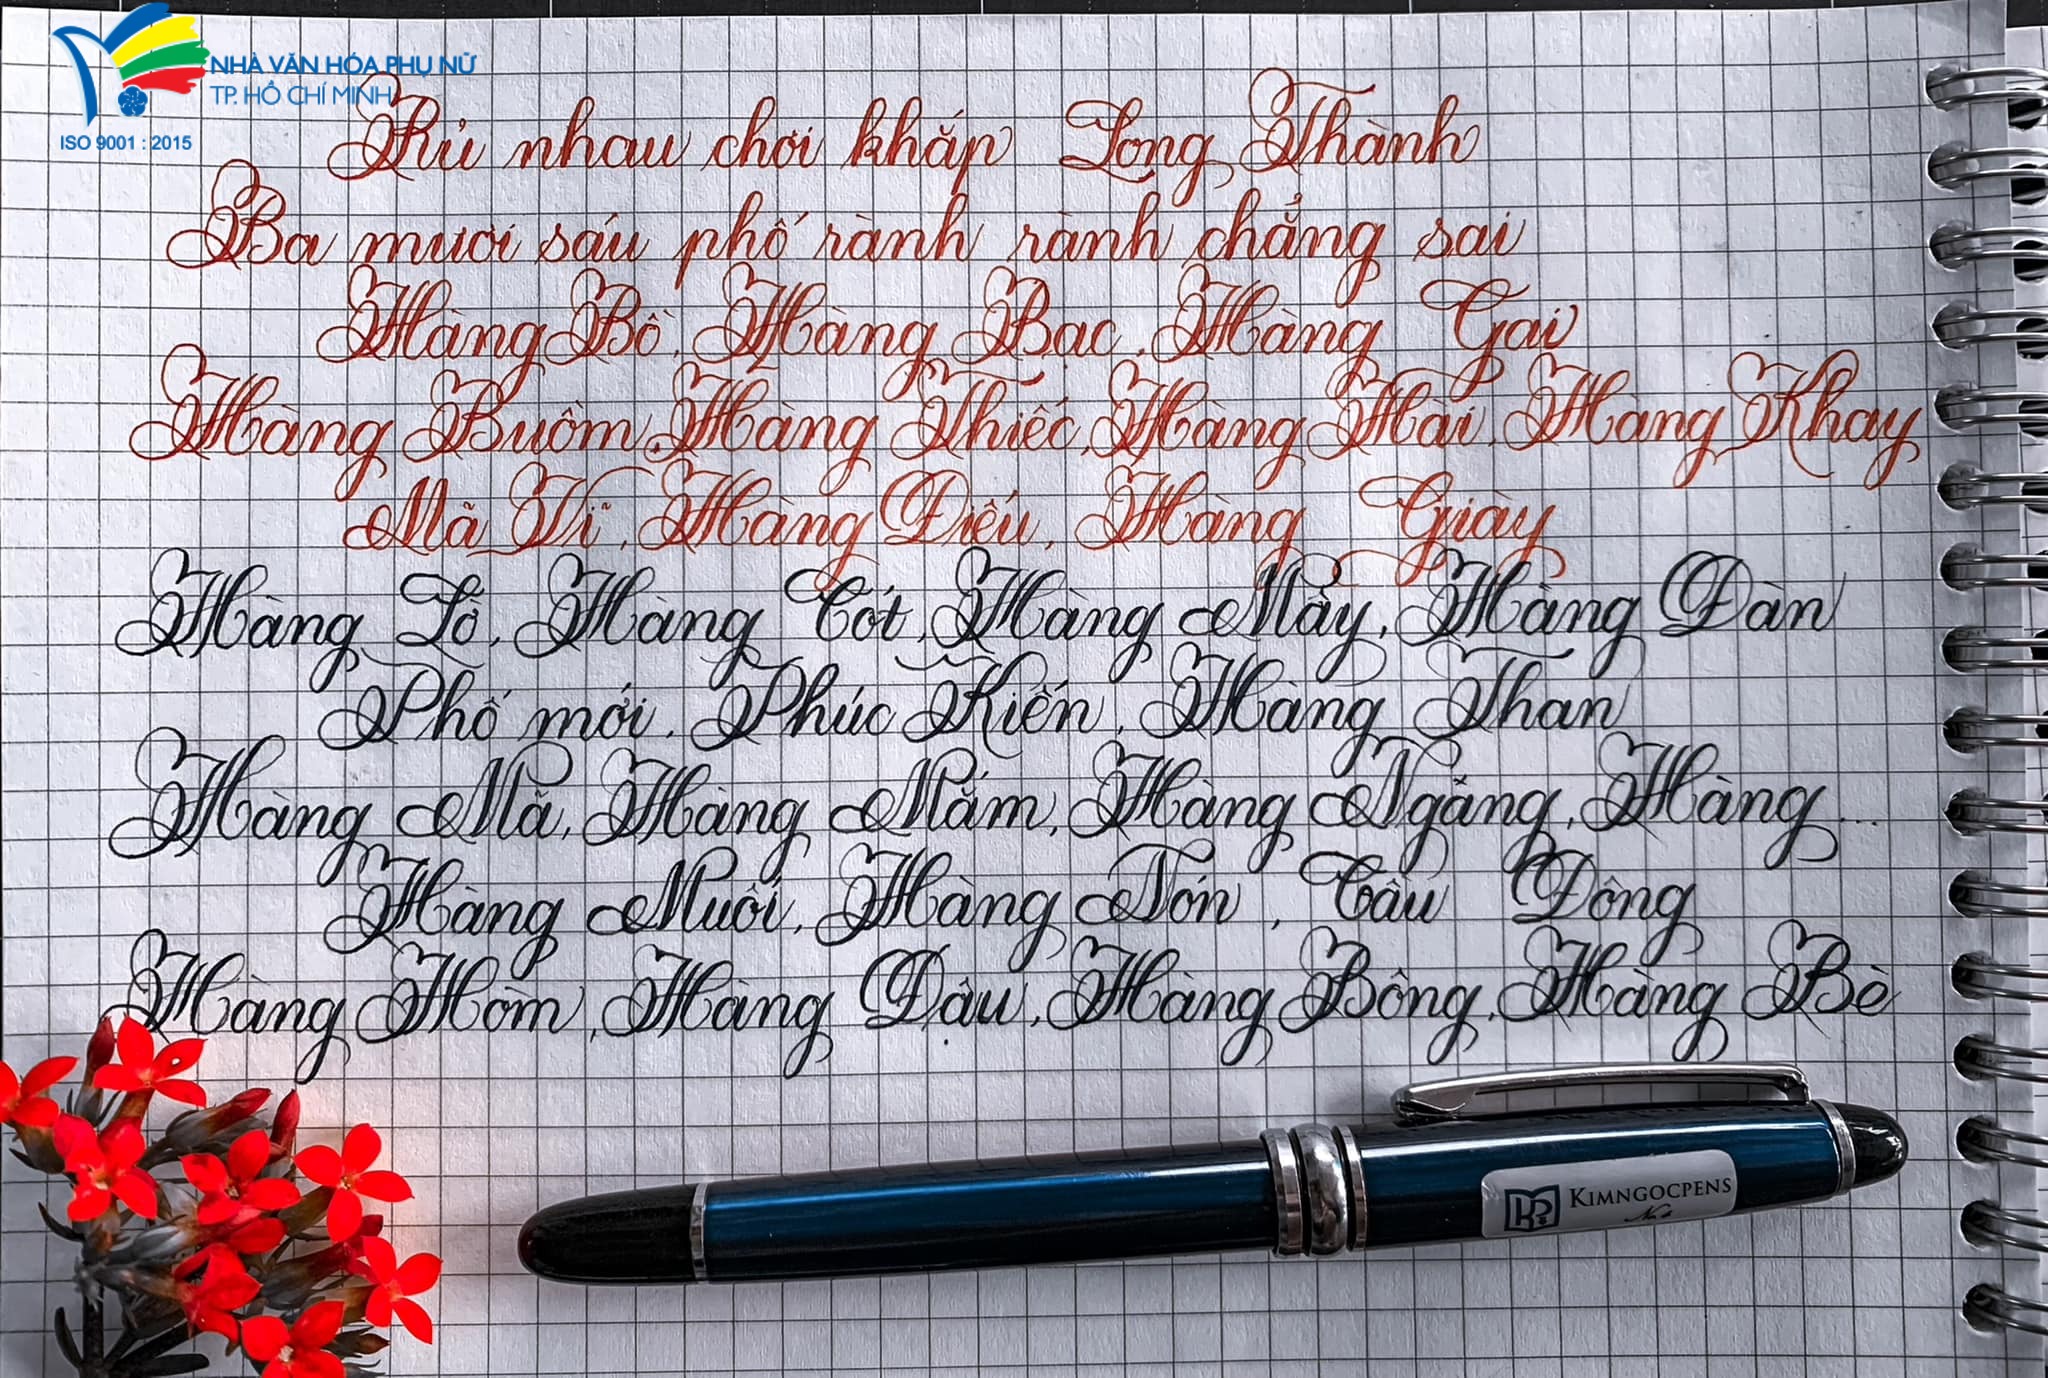 NHÀ VĂN HÓA PHỤ NỮ
TP. HỒ CHÍ MINH
ISO 9001 : 2015
Rủ nhau chơi khắp Long Thành
Ba mươi sáu phố rành rành chẳng sai
Hàng Bồ, Hàng Bạc, Hàng Gai
Hàng Buồm, Hàng Thiếc, Hàng Hài, Hàng Khay
Mã Vĩ, Hàng Điếu, Hàng Giày
Hàng Lờ, Hàng Cót, Hàng Mây, Hàng Đàn
Phố mới, Phúc Kiến, Hàng Than
Hàng Mã, Hàng Mắm, Hàng Ngang, Hàng ...
Hàng Muối, Hàng Nón, Cầu Đông
Hàng Hòm, Hàng Đậu, Hàng Bông, Hàng Bè
KIMNGOCPENS